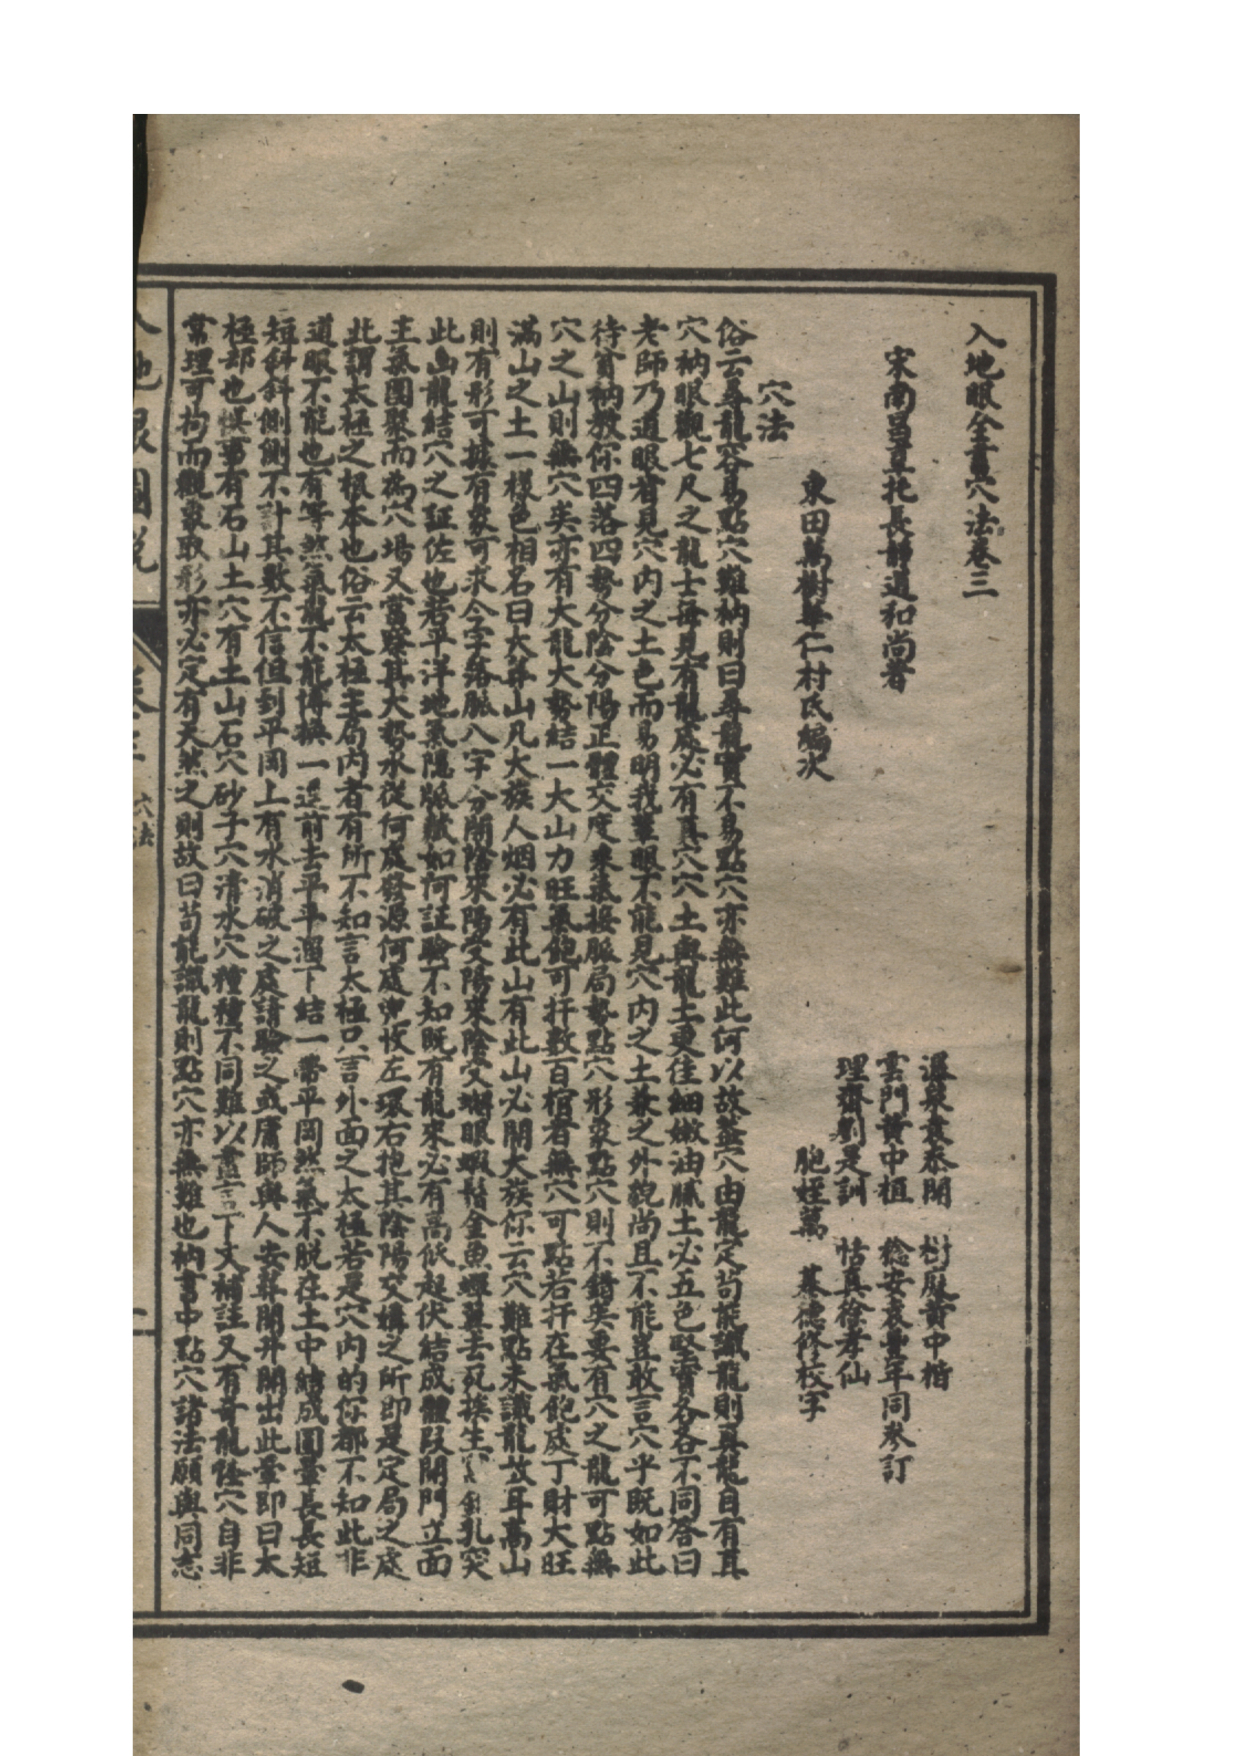 入地眼全書穴法卷三
宋南昌辜托長靜道和尚著
溫泉袁泰開 樹庭黃中楷
雲門黃中植 稔安袁豐年同參訂
理齋劉是訓 恬真徐孝仙
東田萬樹華仁村氏編次
胞姪萬 慕德修校字
穴法
俗云尋龍容易點穴難衲則曰尋龍實不易點穴亦無難此何以故蓋穴由龍定苟能識龍則真龍自有真
穴衲眼觀七尺之龍士每見有龍處必有真穴穴土與龍土更佳細嫩油膩土必五色堅實各各不同答曰
老師乃道眼者見穴內之土色而易明我輩眼不能見穴內之土兼之外貌尚且不能豈敢言穴乎既如此
待貧衲教你四落四勢分陰分陽正體交度來氣接脈局勢點穴形象點穴則不錯矣要有穴之龍可點無
穴之山則無穴矣亦有大龍大勢結一大山力旺氣飽可扦數百棺者無穴可點若扦在氣飽處丁財大旺
滿山之土一樣色相名曰大葬山凡大族人烟必有此山有此山必開大族你云穴難點未識龍故耳高山
則有形可據有象可求今字落脈八字分開陰來陽受陽來陰受蟹眼蝦鬚金魚蟬翼去死挨生 孔突
此山龍結穴之証佐也若平洋地氣隱脈藏如何証驗不知既有龍來必有高低起伏結成體段開門立面
主氣團聚而為穴場又當察其大勢水從何處發源何處兜收左環右抱其陰陽交媾之所即是定局之處
此謂太極之根本也俗云太極主局內者有所不知言太極只言外面之太極若是穴內的你都不知此非
道眼不能也有等煞氣龍不能博換一逕前去平平溜下結一帶平岡煞氣不脫在土中結成圓暈長長短
短斜斜側側不計其數不信但到平岡上有水消破之處請驗之或庸師與人安葬開井開出此暈即曰太
極郎也悞事有石山土穴有土山石穴砂子穴清水穴種種不同難以盡言下文補註又有奇龍怪穴自非
常理可拘而觀象取形亦必定有天然之則故曰苟能識龍則點穴亦無難也衲書中點穴諸法願與同志
入地眼圖說 卷三 穴法 一